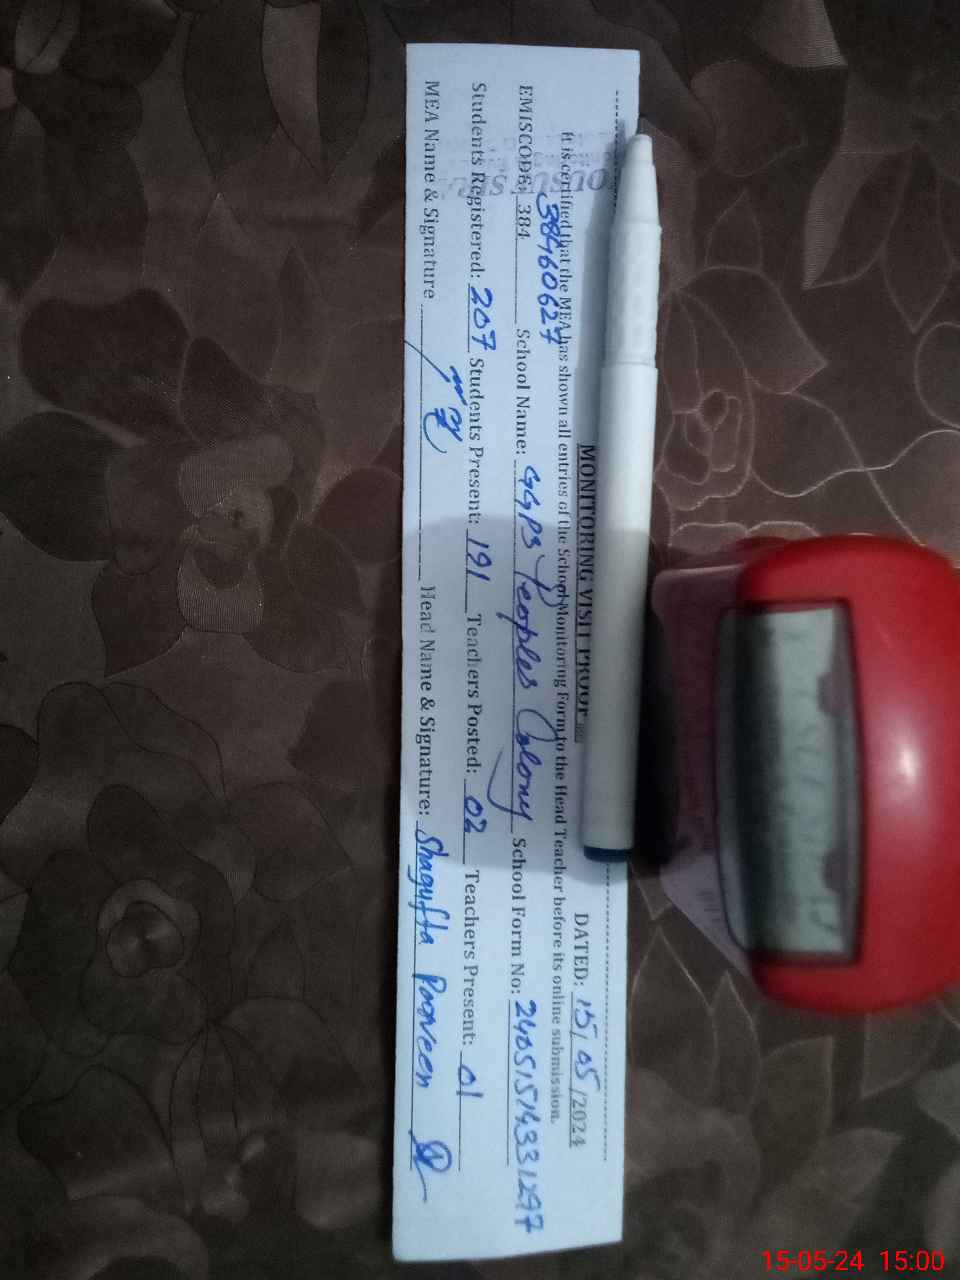 MONITORING VISIT PROOF
DATED: 15/05/2024
it is certified that the MEA has shown all entries of the School Monitoring Form to the Head Teacher before its online submission.
38460627
EMISCODE: 384 School Name: GGPS Peoples Colony School Form No:
Students Registered: 207 Students Present: 191 Teachers Posted: 02 Teachers Present: 01
MEA Name & Signature Head Name & Signature: Shagufta Parveen
15-05-24 15:00